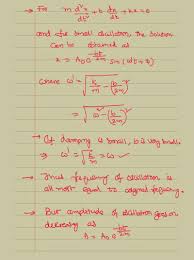 → For m d²x/dt² + b dx/dt + kx = 0
and for small oscillation, the solution
can be obtained as
x = A₀ e^(-bt/2m) sin (ω't + )
where ω' = √(k/m - (b/2m)²)
= √(ω² - (b/2m)²)
→ If damping is small, b is very small
→ ω' = √(k/m) = ω
→ Thus frequency of oscillation is
almost equal to original frequency.
→ But amplitude of oscillation goes on
decreasing as
A = A₀ e^(-bt/2m)